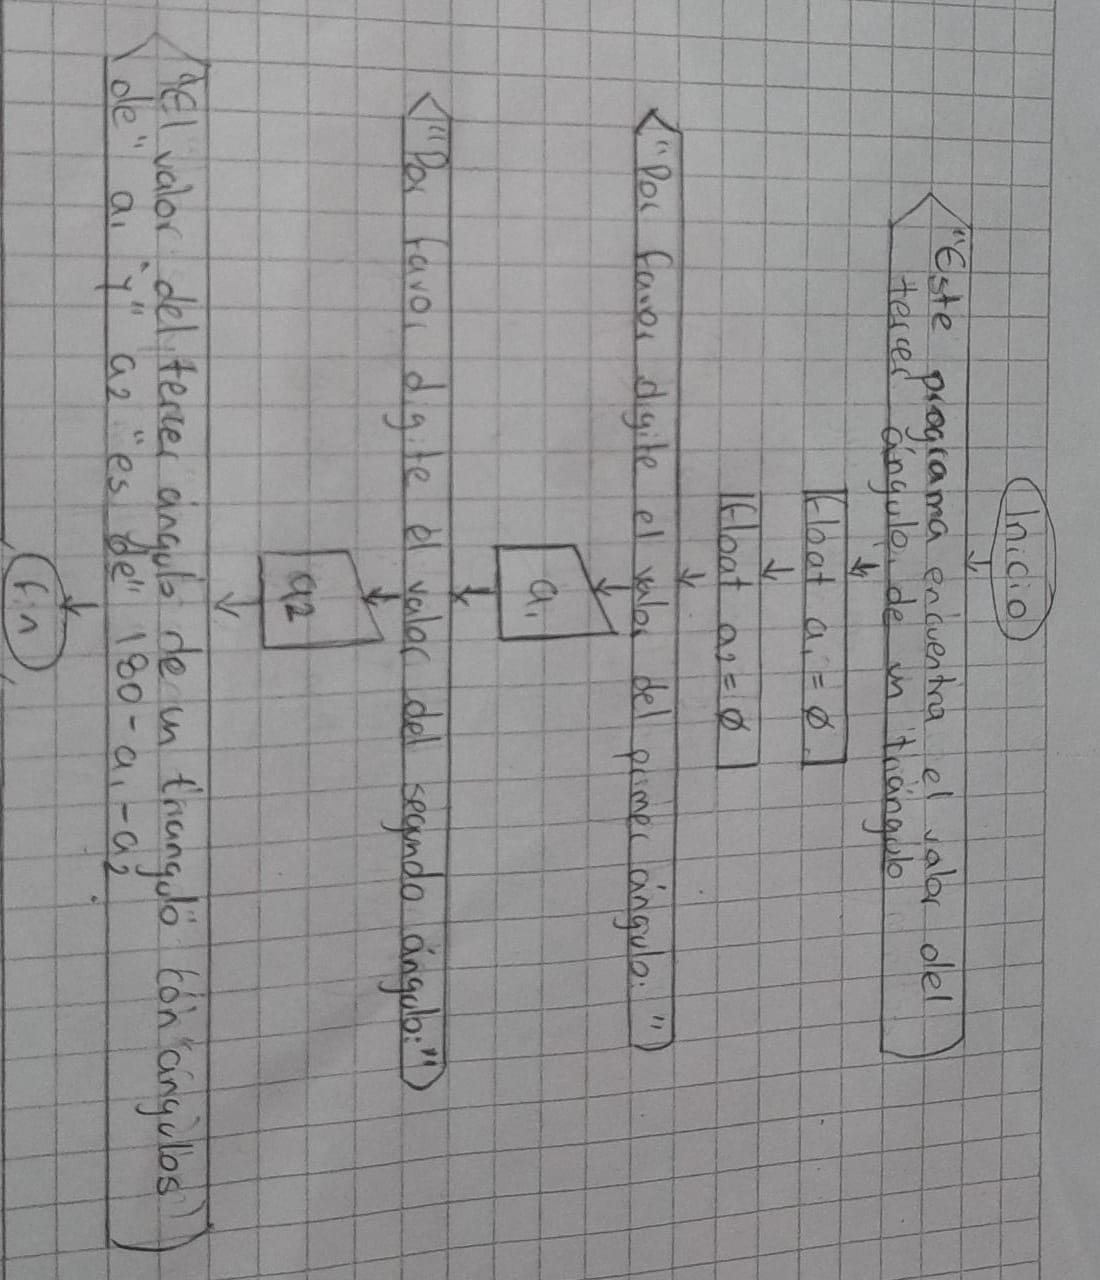 Inicio
"Este programa encuentra el valor del
tercer ángulo de un triángulo
float a1 = Ø
float a2 = Ø
"Por favor digite el valor del primer ángulo: "
a1
"Por favor digite el valor del segundo ángulo:"
a2
"El valor del tercer ángulo de un triangulo con ángulos
de" a1 "y" a2 "es de" 180-a1-a2
fin